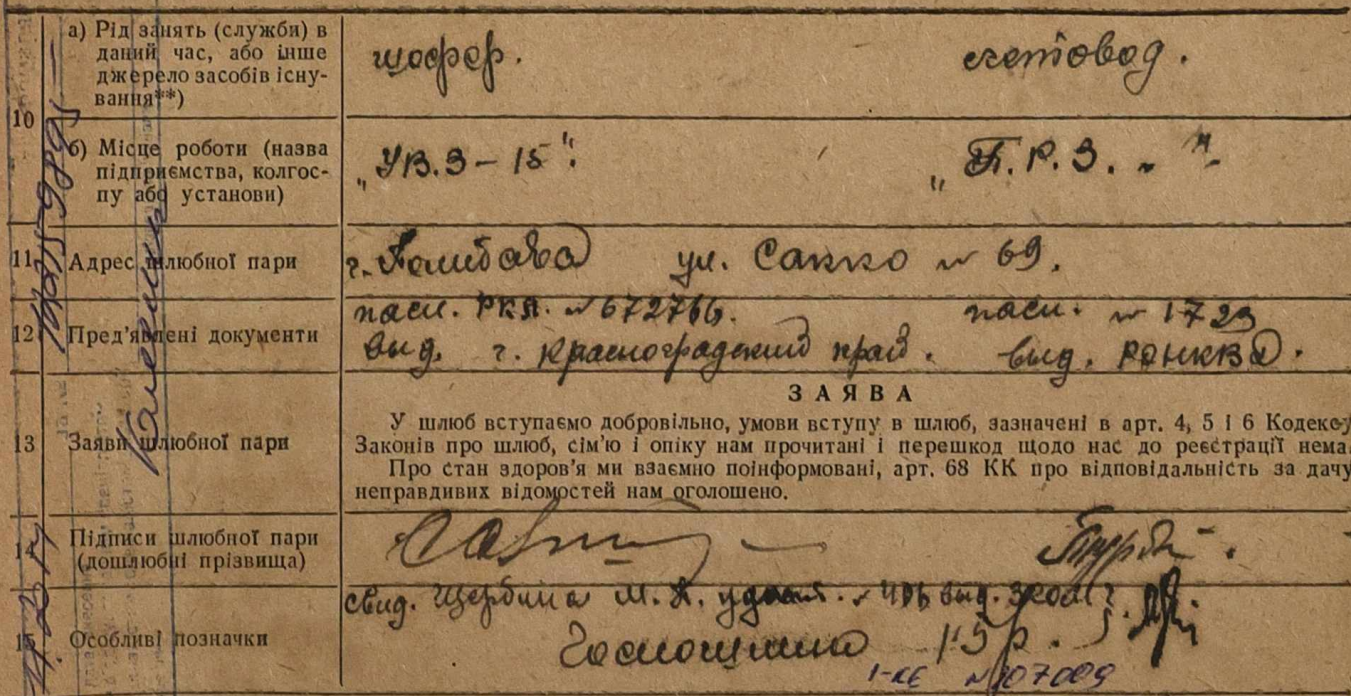 10
а) Рід занять (служби) в
даний час, або інше
джерело засобів існу-
вання**)
шофер. счетовод.
б) Місце роботи (назва
підприємства, колгос-
пу або установи)
„УВ.З – 15“. „П.Р.З.“
11 Адрес шлюбної пари
г. ул. Сакко № 69.
12 Пред'явлені документи
пасп. № 672766. пасп. № 1723
выд. г. Красноградский край. выд.
13 Заяви шлюбної пари
ЗАЯВА
У шлюб вступаємо добровільно, умови вступу в шлюб, зазначені в арт. 4, 5 і 6 Кодексу
Законів про шлюб, сім'ю і опіку нам прочитані і перешкод щодо нас до реєстрації нема
Про стан здоров'я ми взаємно поінформовані, арт. 68 КК про відповідальність за дачу
неправдивих відомостей нам оголошено.
14 Підписи шлюбної пари
(дошлюбні прізвища)
Особливі позначки
свид. Щербина М.
Госпошлина 15 р.
№ 107009